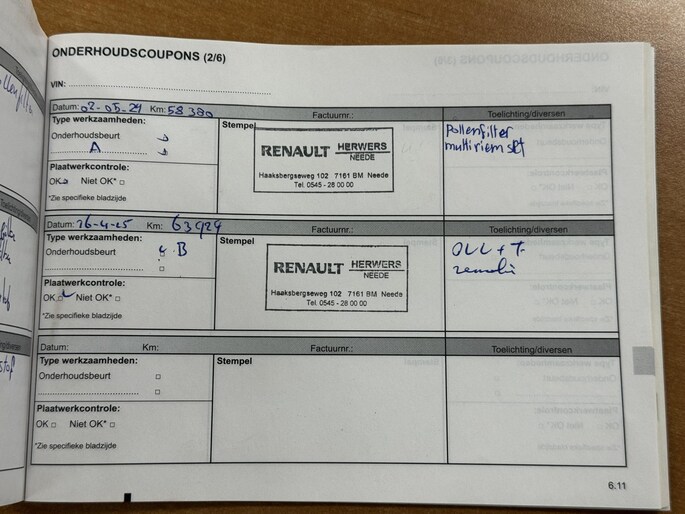 ONDERHOUDSCOUPONS (2/6)
VIN:
Datum: 02-05-24 Km: 58380 Factuurnr.: Toelichting/diversen
Type werkzaamheden:
Onderhoudsbeurt
A
Plaatwerkcontrole:
OK Niet OK*
*Zie specifieke bladzijde
Stempel
RENAULT HERWERS
NEEDE
Haaksbergseweg 102 7161 BM Neede
Tel. 0545 - 28 00 00
Pollenfilter
multiriem set
Datum: 26-4-25 Km: 63929 Factuurnr.: Toelichting/diversen
Type werkzaamheden:
Onderhoudsbeurt B
Plaatwerkcontrole:
OK Niet OK*
*Zie specifieke bladzijde
Stempel
RENAULT HERWERS
NEEDE
Haaksbergseweg 102 7161 BM Neede
Tel. 0545 - 28 00 00
Datum: Km: Factuurnr.: Toelichting/diversen
Type werkzaamheden:
Onderhoudsbeurt
Plaatwerkcontrole:
OK Niet OK*
*Zie specifieke bladzijde
Stempel
6.11